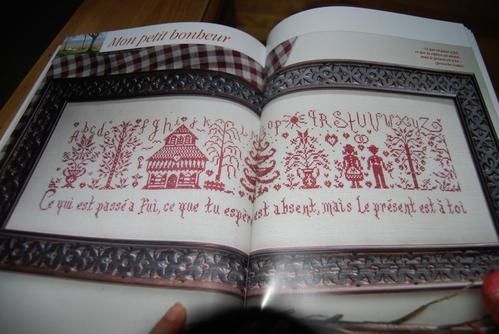 Mon petit bonheur
Abcdefghijkl
opqrstuvwxyz
Ce qui est passé a fui, ce que tu espères est absent, mais le présent est à toi